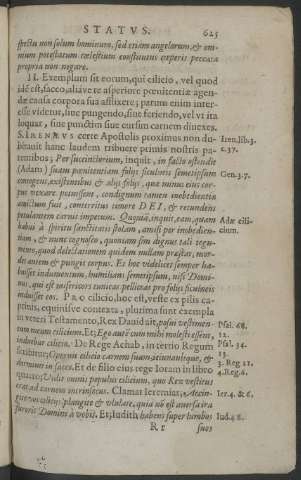 STATVS. 625
spectu non solum hominum, sed etiam angelorum, & om-
nium potestatum cælestium constitutus corporis peccata
propria non negare.
II. Exemplum sit eorum, qui cilicio, vel quod
idē est, sacco, aliave te asperiore pœnitentiæ agen-
dæ causa corpora sua afflixere; parum enim inter-
esse videtur, sine pungendo, sine feriendo, vel vt ita
loquar, sine punctim siue cæsim carnem domes.
S. IRENÆVS certe Apostolis proximus non du-
bitauit hanc laudem tribuere primis nostris pa-
rentibus; Per succinctorium, inquit, in facto ostendit
(Adam) suam pœnitentiam folijs ficulneis semetipsum
contegens, existentibus & alijs folijs, quæ minus eius cor-
pus vexare potuissent, condignum tamen inobedientiæ
amictum fecit, conterritus timore DEI, & retundens
petulantem carnis impetum. Quoniā, inquit, eam, quam
habui à spiritu sanctitatis stolam, amisi per inobedien-
tiam, & nunc cognosco, quoniam sim dignus tali tegu-
mento, quod delectationem quidem nullam præstat, mor-
det autem & pungit corpus. Et hoc videlicet semper ha-
buisset indumentum, humilians semetipsum, nisi Domi-
nus, qui est misericors tunicas pelliceas pro folijs ficulneis
induisset eos. PRO cilicio, hoc est, veste ex pilis ca-
prinis, equinisve contexta, plurima sunt exempla
in veteri Testamento, Rex Dauid ait, posui vestimen-
tum meum cilicium. Et; Ego autē cum mihi molesti essent,
induebar cilicio. De Rege Achab, in tertio Regum
scribitur; Operuit cilicio carnem suam, ieiunauitque, &
dormiuit in sacco. Et de filio eius rege Ioram in libro
quarto; Vidit omnis populus cilicium, quo Rex vestitus
erat, ad carnem intrinsecus. Clamat Ieremias; Accin-
gite vos cilicijs: plangite & vlulate, quia nō est auersa ira
furoris Domini à vobis. Et; Iudith habens super lumbos
Rr suos
Iren. lib. 3.
c. 37.
Gen. 3. 7.
Adæ cili-
cium.
Psal. 68.
12.
Psal. 34.
13.
3. Reg. 21.
4. Reg. 6.
Ier. 4. & 6.
Iud. 8.